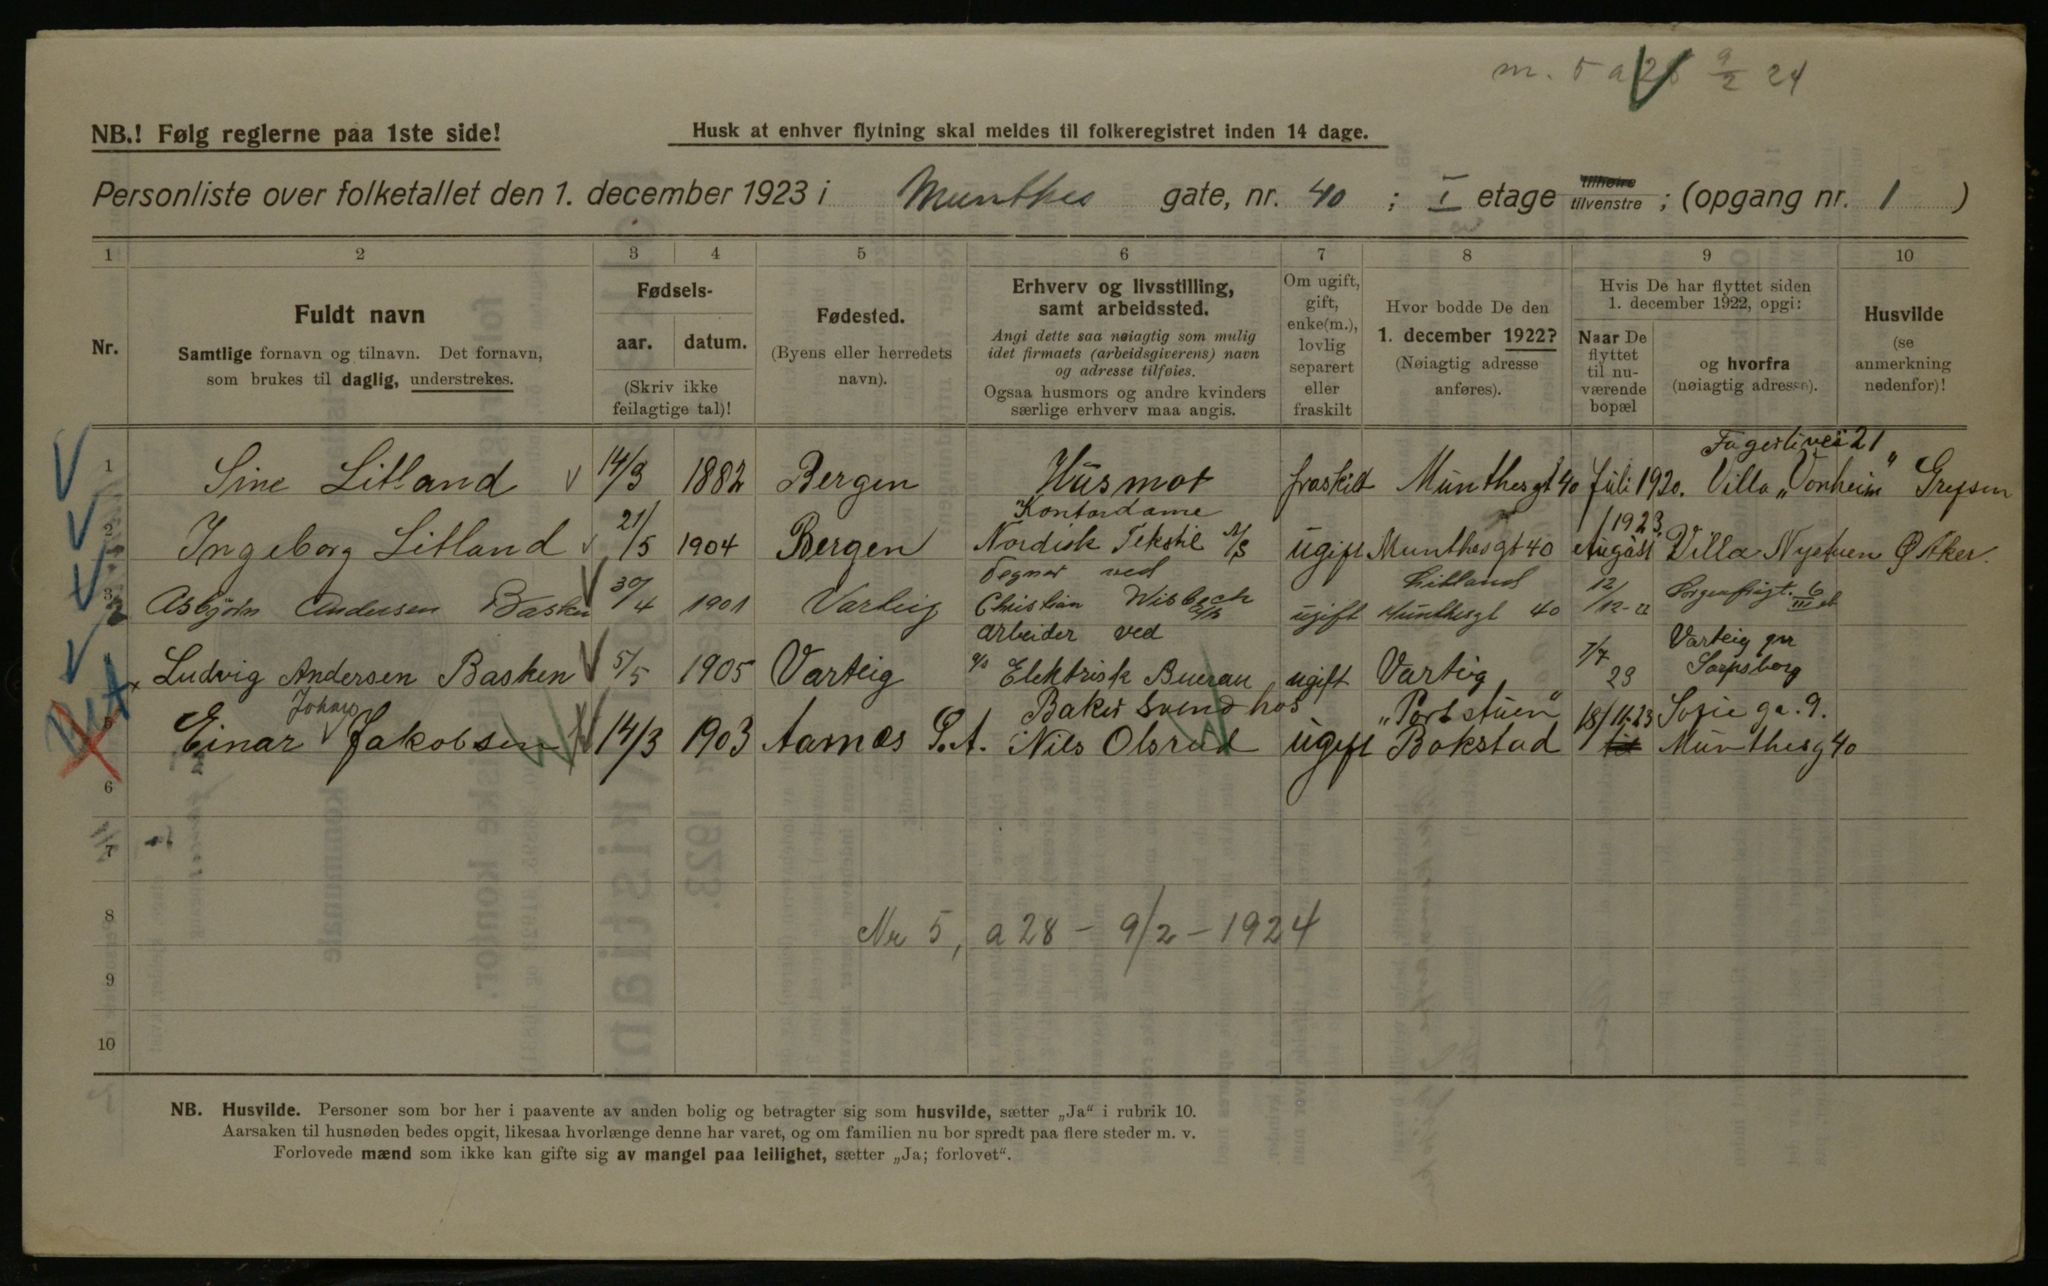 m. 5 a 28 9/2 24
NB.! Følg reglerne paa 1ste side!
Husk at enhver flytning skal meldes til folkeregistret inden 14 dage.
Personliste over folketallet den 1. december 1923 i Munthes gate, nr. 40 ; I etage tilhøire tilvenstre ; (opgang nr. 1 )
1 2 3 4 5 6 7 8 9 10
Nr.
Fuldt navn
Samtlige fornavn og tilnavn. Det fornavn,
som brukes til daglig, understrekes.
Fødsels-
aar. datum.
(Skriv ikke
feilagtige tal)!
Fødested.
(Byens eller herredets
navn).
Erhverv og livsstilling,
samt arbeidssted.
Angi dette saa nøiagtig som mulig
idet firmaets (arbeidsgiverens) navn
og adresse tilføies.
Ogsaa husmors og andre kvinders
særlige erhverv maa angis.
Om ugift,
gift,
enke(m.),
lovlig
separert
eller
fraskilt
Hvor bodde De den
1. december 1922?
(Nøiagtig adresse
anføres).
Hvis De har flyttet siden
1. december 1922, opgi:
Naar De
flyttet
til nu-
værende
bopæl
og hvorfra
(nøiagtig adresse).
Husvilde
(se
anmerkning
nedenfor)!
Fagerlivei 21
1 Sine Litland 14/3 1882 Bergen Husmor fraskilt Munthesgt 40 Juli 1920. Villa „Vonheim" Grefsen
Kontordame
2 Ingeborg Litland 21/5 1904 Bergen Nordisk Tekstil A/S ugift Munthesgt 40 August 1923 Villa Nyetuen Ø Aker.
Tegner ved Litland
3 Asbjørn Andersen Basken 30/4 1901 Varteig Christian Wisbech ugift Munthesgt 40 12/12-22 Sorgenfrigt. 6 III et
Arbeider ved Varteig pr
Ludvig Andersen Basken 5/5 1905 Varteig a/s Elektrisk Buerau ugift Varteig 7/7 23 Sarpsborg
Johan Baker Svend hos „Portstuen" 18/11.23 Sofie ga. 9.
5 Einar Jakobsen 14/3 1903 Aarnes S.A. Nils Olsrud ugift Bokstad Munthesg 40
6
7
8 Nr 5, a 28 – 9/2 – 1924
9
10
NB. Husvilde. Personer som bor her i paavente av anden bolig og betragter sig som husvilde, sætter „Ja" i rubrik 10.
Aarsaken til husnøden bedes opgit, likesaa hvorlænge denne har varet, og om familien nu bor spredt paa flere steder m. v.
Forlovede mænd som ikke kan gifte sig av mangel paa leilighet, sætter „Ja; forlovet".